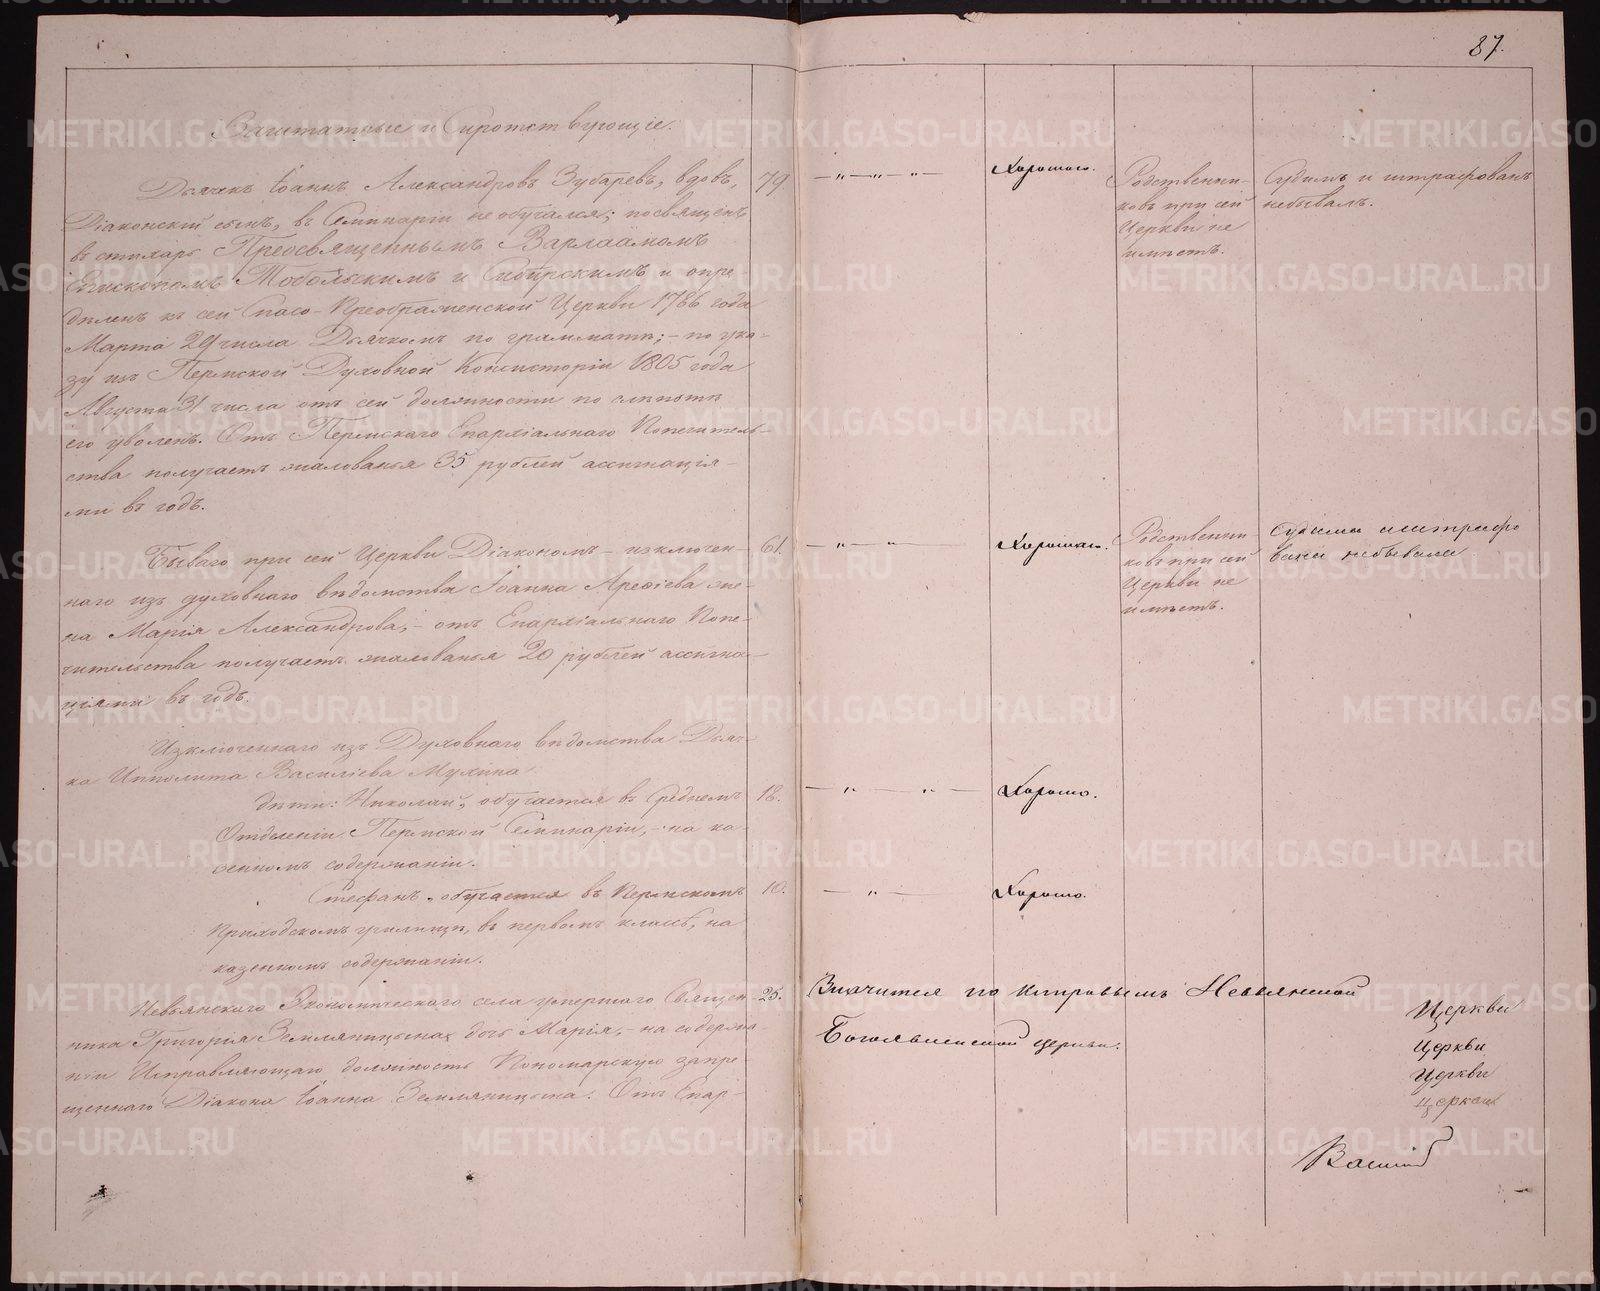 87.
Заштатные и Сиротствующіе.
Дьячекъ Іоаннъ Александровъ Зубаревъ, вдовъ, 79
Діаконскій сынъ, въ Семинаріи не обучался; посвященъ
въ стихарь Преосвященнымъ Варлаамомъ
Епископомъ Тобольскимъ и Сибирскимъ и опре-
дѣленъ къ сей Спасо-Преображенской Церкви 1786 года
Марта 29 числа Дьячкомъ по грамматѣ; - по ука-
зу изъ Пермской Духовной Консисторіи 1805 года
Августа 31 числа отъ сей должности по слѣпотѣ
его уволенъ. Отъ Пермскаго Епархіальнаго Попечитель-
ства получаетъ жалованья 35 рублей ассигнація-
ми въ годъ.
— „ — „ — „ —
Хорошаго.
Родственни-
ковъ при сей
Церкви не
имѣетъ.
Судимъ и штрафованъ
небывалъ.
Бываго при сей Церкви Діакономъ - изключен- 61.
наго изъ духовнаго вѣдомства Іоанна Арефіева же-
на Марія Александрова, - отъ Епархіальнаго Попе-
чительства получаетъ жалованья 20 рублей ассигна-
ціями въ годъ.
— „ — „ —
Хорошаго.
Родственни
ковъ при сей
Церкви не
имѣетъ.
Судима и штрафо
вана небывала
Изключеннаго изъ Духовнаго вѣдомства Дьяч-
ка Ипполита Василіева Мухина
дѣти: Николай, обучается въ Среднемъ 18.
Отдѣленіи Пермской Семинаріи, - на ка-
зенномъ содержаніи.
— „ — „ —
Хорошо.
Стефанъ, обучается въ Пермскомъ 10.
Приходскомъ училищѣ, въ первомъ классѣ, на
казенномъ содержаніи.
— „ —
Хорошо.
Невьянскаго Экономическаго села умершаго Священ- 25.
ника Григорія Земляницына дочь Марія, - на содержа-
ніи Исправляющаго должность Пономарскую запре-
щеннаго Діакона Іоанна Земляницына. Отъ Епар-
Значится по Невьянской
Богоявленской церкви.
Церкви
Церкви
Церкви
Церкви